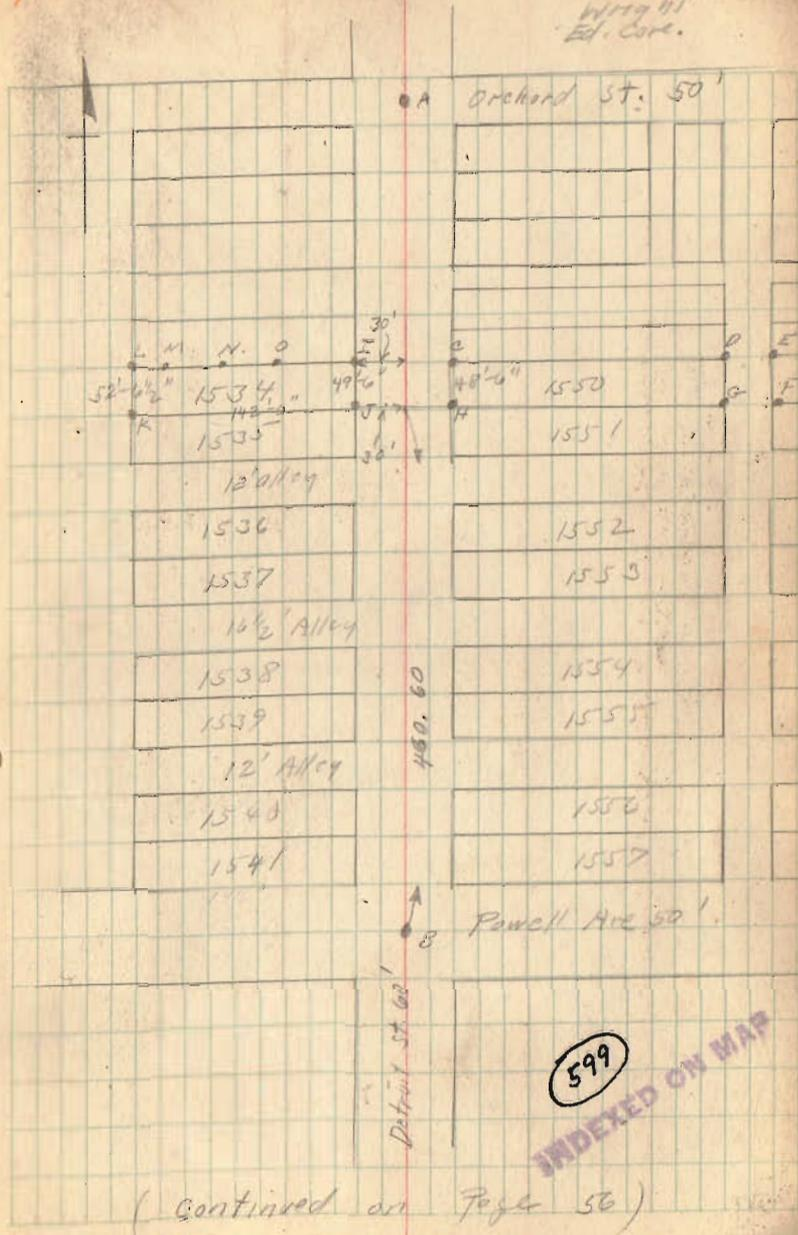 Wright
Ed. Core.
A Orchard St. 50'
30'
L M. N. O H C D E
52'-6 1/2" 1534 49'-6" 48'-6" 1550
K 148'-0" J H G F
1535 30' 1551
12' alley
1536 1552
1537 1553
16 1/2' Alley
1538 1554
1539 1555
460.60
12' Alley
1540 1556
1541 1557
B Powell Ave 50'.
Detroit St. 60'
599
INDEXED ON MAP
( Continued on Page 56 )